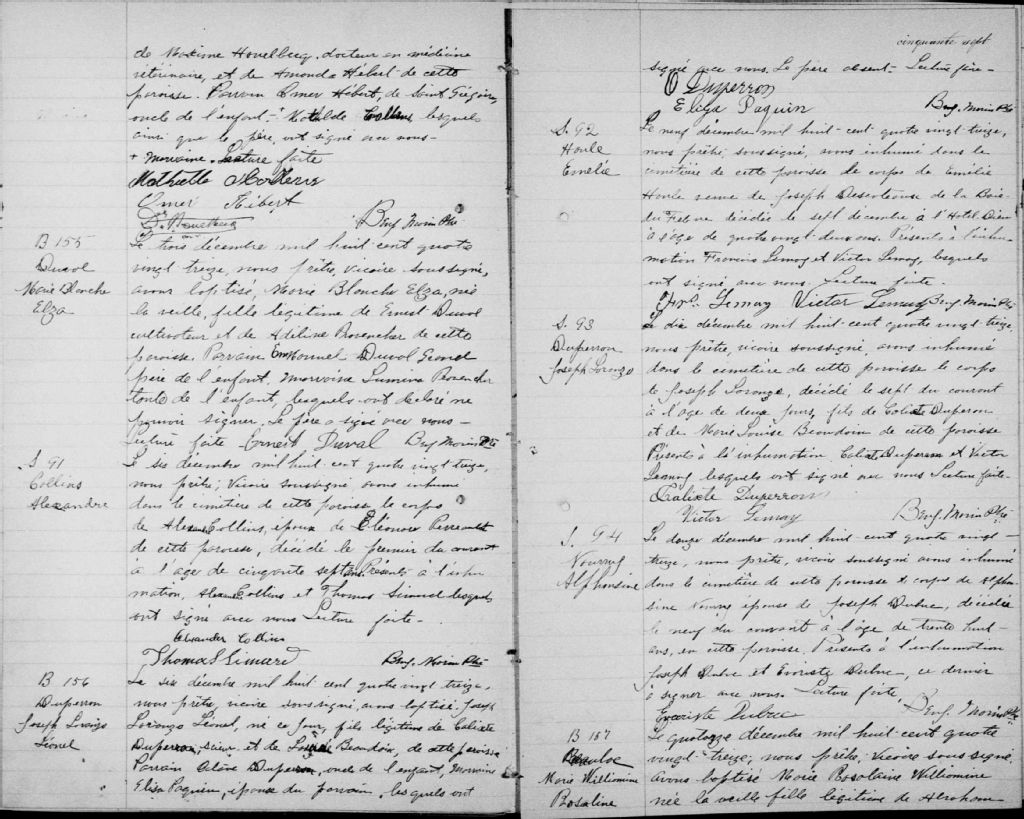 de Maxime Hovelburg, docteur en médicine
vétérinaire, et de Amanda Hébert de cette
paroisse. Parrain Omer Hébert, de Saint Grégoire,
oncle de l'enfant - + Mathilde lesquels
ainsi que le père, ont signé avec nous -
+ marraine. Lecture faite
Omer Hébert
Benj. Morin Ptre
B 155
Duval
Marie Blanche
Elza
Le trois décembre mil huit cent quatre
vingt treize, nous prêtre, vicaire soussigné,
avons baptisé, Marie Blanche Elza, née
la veille, fille légitime de Ernest Duval
cultivateur et de Adéline Provencher de cette
paroisse. Parrain Emmanuel Duval Grand
père de l'enfant. Marraine Lumina Provencher
tante de l'enfant, lesquels ont déclaré ne
pouvoir signer. Le père a signé avec nous -
Lecture faite Ernest Duval Benj Morin Ptre
S. 91
Collins
Alexandre
Le six décembre mil huit cent quatre vingt treize,
nous prêtre, vicaire soussigné, avons inhumé
dans le cimetière de cette paroisse le corps
de Alexandre Collins, époux de Eléonore Perreault
de cette paroisse, décédé le premier du courant
à l'age de cinquante sept ans. Présents à l'inhu
mation, Alexandre Collins et Thomas Simard lesquels
ont signé avec nous Lecture faite -
Alexander Collins
Thomas Simard Benj. Morin Ptre
B 156
Duperron
Joseph Lorenzo
Lionel
Le six décembre mil huit cent quatre vingt treize,
nous prêtre, vicaire soussigné, avons baptisé Joseph
Lorenzo Lionel, né ce jour, fils légitime de Calixte
Duperron, sieur et de Louise Beaudoin, de cette paroisse
Parrain Octave Duperron, oncle de l'enfant, marraine
Eliza Paquin, épouse du parrain, lesquels ont
cinquante sept
signé avec nous. Le père absent - Lecture faite -
O Duperron
Eliza Paquin Benj. Morin Ptre
S. 92
Houle
Emélie
Le neuf décembre mil huit-cent quatre vingt treize,
nous prêtre, soussigné, avons inhumé dans le
cimetière de cette paroisse le corps de Emélie
Houle veuve de Joseph Descoteaux de la Baie
du Febvre décédée le sept décembre à l'Hotel Dieu
à l'age de quatre vingt deux ans. Présents à l'inhu-
mation Francois Lemay et Victor Lemay, lesquels
ont signé avec nous. Lecture faite.
Frs. Lemay Victor Lemay Benj. Morin Ptre
S. 93
Duperron
Joseph Lorenzo
Le dix décembre mil huit-cent quatre vingt treize,
nous prêtre, vicaire soussigné, avons inhumé
dans le cimetière de cette paroisse le corps
de Joseph Lorenzo, décédé le sept du courant
à l'age de deux jours, fils de Calixte Duperron
et de Marie Louise Beaudoin de cette paroisse
Présents à l'inhumation Calixte Duperron et Victor
Lemay, lesquels ont signé avec nous Lecture faite -
Calixte Duperron
Victor Lemay Benj. Morin Ptre
S. 94
Alphonsine
Le douze décembre mil huit cent quatre vingt -
treize, nous prêtre, vicaire soussigné avons inhumé
dans le cimetière de cette paroisse le corps de Alphon
sine épouse de Joseph Dubuc, décédée
le neuf du courant à l'age de trente huit -
ans, en cette paroisse. Présents à l'inhumation
Joseph Dubuc et Evariste Dubuc, ce dernier
a signer avec nous. Lecture faite,
Evariste Dubuc Benj. Morin Ptre
B 157
Marie Williamine
Rosaline
Le quatorze décembre mil huit-cent quatre
vingt-treize, nous prêtre, vicaire soussigné,
avons baptisé Marie Rosolaine Williamine
née la veille fille légitime de Abraham